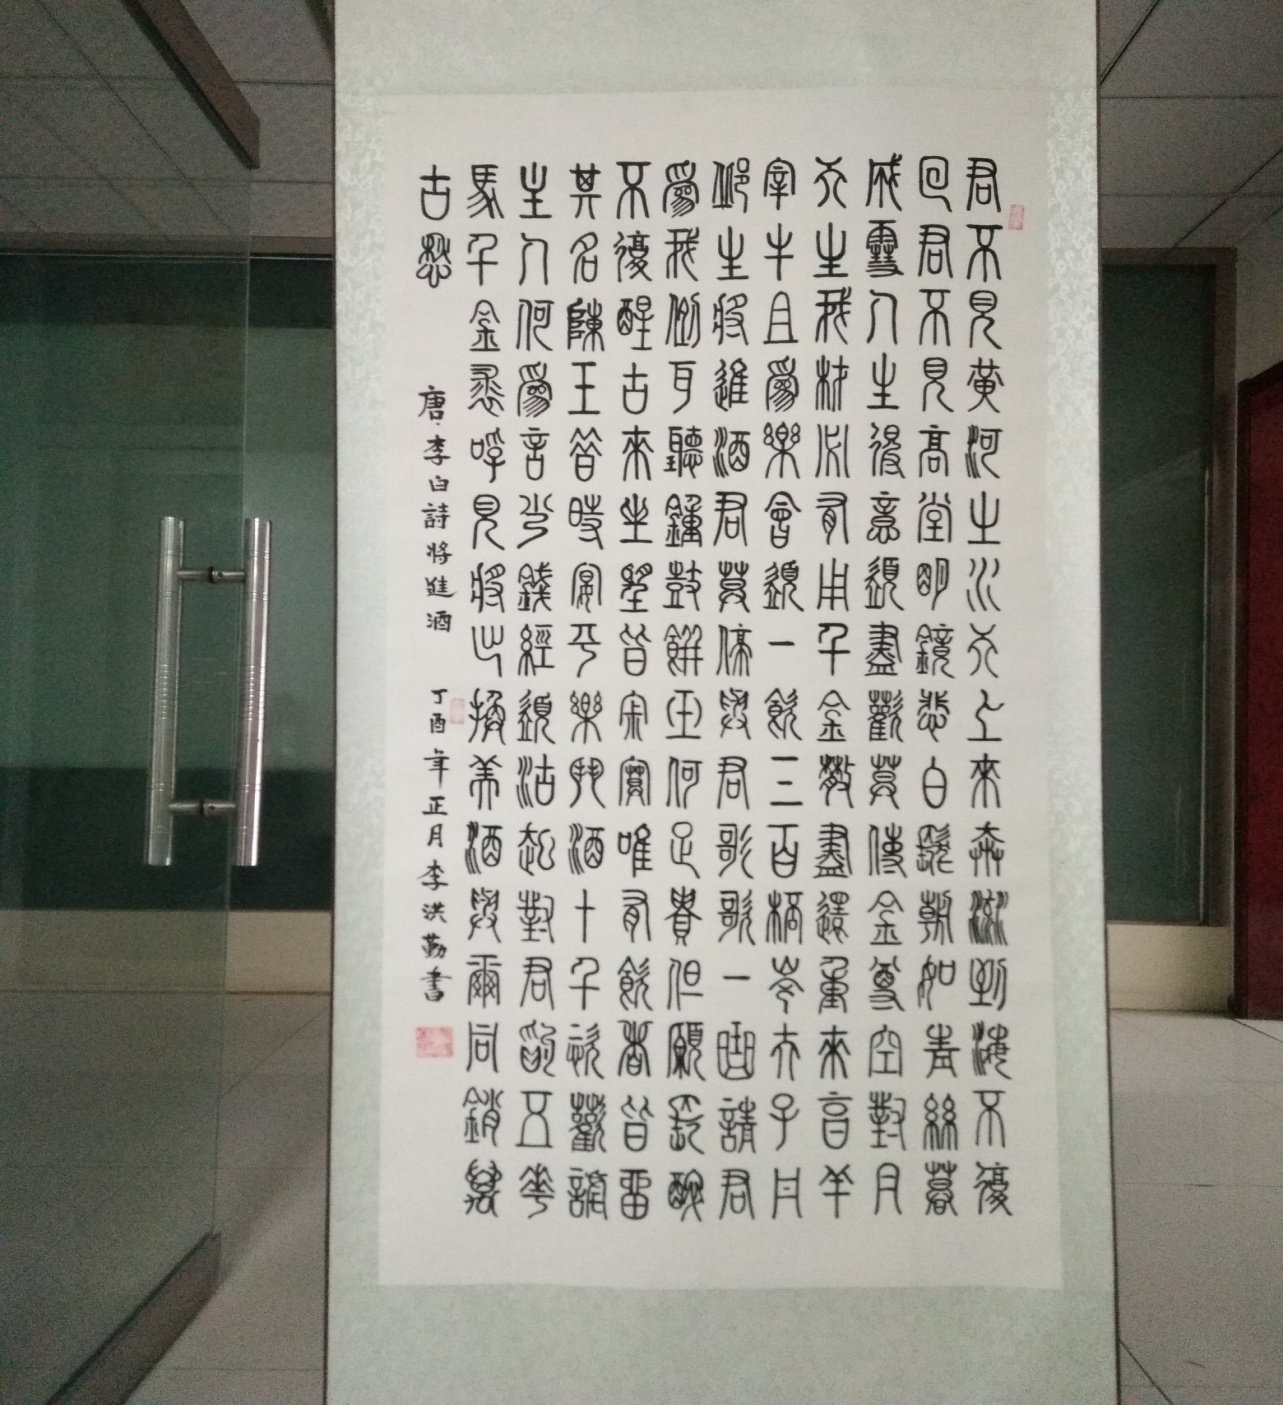 君不見黄河之水天上來奔流到海不復
回君不見高堂明鏡悲白髮朝如青絲暮
成雪人生得意須盡歡莫使金尊空對月
天生我材必有用千金散盡還重來亨羊
宰牛且爲樂會須一飲三百桮岑夫子丹
邱生將進酒君莫停與君歌歌一曲請君
爲我側耳聽鐘鼓玉何足貴但願長醉
不復醒古來皆寂寞唯有飲者皆留
其名陳王昔時宴平樂鬥酒十千恣歡謔
主人何爲言少錢經須沽取對君酌五花
馬千金裘呼兒將出換美酒與爾同銷萬
古愁
唐·李白詩將進酒
丁酉年正月李洪勤書